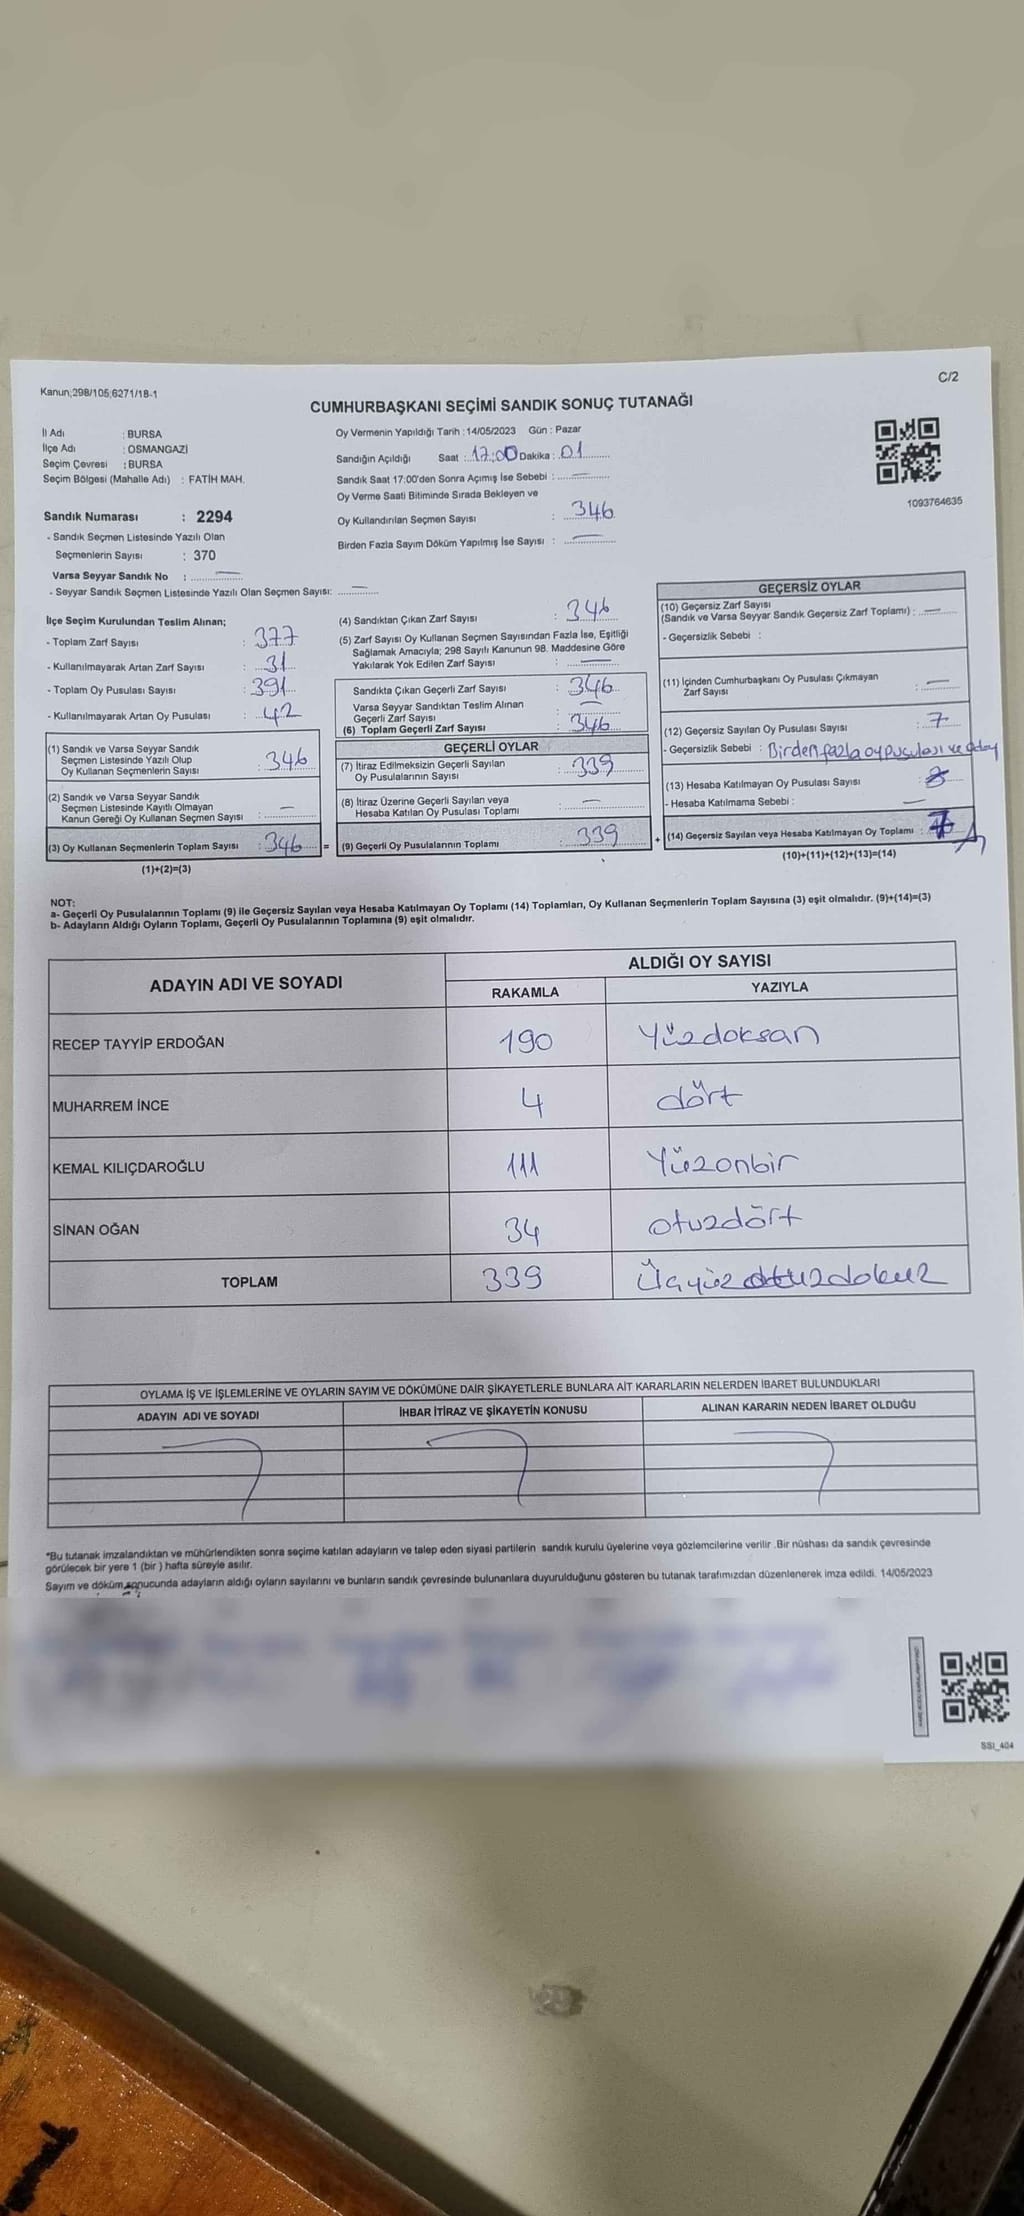 Kanun;298/105;6271/18-1
C/2
CUMHURBAŞKANI SEÇİMİ SANDIK SONUÇ TUTANAĞI
İl Adı : BURSA
İlçe Adı : OSMANGAZİ
Seçim Çevresi : BURSA
Seçim Bölgesi (Mahalle Adı) : FATİH MAH.
Sandık Numarası : 2294
- Sandık Seçmen Listesinde Yazılı Olan
Seçmenlerin Sayısı : 370
Varsa Seyyar Sandık No : —
- Seyyar Sandık Seçmen Listesinde Yazılı Olan Seçmen Sayısı: —
Oy Vermenin Yapıldığı Tarih : 14/05/2023 Gün : Pazar
Sandığın Açıldığı Saat : 17:00 Dakika : 01
Sandık Saat 17:00'den Sonra Açımış İse Sebebi : —
Oy Verme Saati Bitiminde Sırada Bekleyen ve
Oy Kullandırılan Seçmen Sayısı : 346
Birden Fazla Sayım Döküm Yapılmış İse Sayısı : —
1093764635
İlçe Seçim Kurulundan Teslim Alınan;
- Toplam Zarf Sayısı : 377
- Kullanılmayarak Artan Zarf Sayısı : 31
- Toplam Oy Pusulası Sayısı : 391
- Kullanılmayarak Artan Oy Pusulası : 42
(1) Sandık ve Varsa Seyyar Sandık
Seçmen Listesinde Yazılı Olup
Oy Kullanan Seçmenlerin Sayısı : 346
(2) Sandık ve Varsa Seyyar Sandık
Seçmen Listesinde Kayıtlı Olmayan
Kanun Gereği Oy Kullanan Seçmen Sayısı : —
(3) Oy Kullanan Seçmenlerin Toplam Sayısı : 346 =
(1)+(2)=(3)
(4) Sandıktan Çıkan Zarf Sayısı : 346
(5) Zarf Sayısı Oy Kullanan Seçmen Sayısından Fazla İse, Eşitliği
Sağlamak Amacıyla; 298 Sayılı Kanunun 98. Maddesine Göre
Yakılarak Yok Edilen Zarf Sayısı : —
Sandıkta Çıkan Geçerli Zarf Sayısı : 346
Varsa Seyyar Sandıktan Teslim Alınan
Geçerli Zarf Sayısı : —
(6) Toplam Geçerli Zarf Sayısı : 346
GEÇERLİ OYLAR
(7) İtiraz Edilmeksizin Geçerli Sayılan
Oy Pusulalarının Sayısı : 339
(8) İtiraz Üzerine Geçerli Sayılan veya
Hesaba Katılan Oy Pusulası Toplamı : —
(9) Geçerli Oy Pusulalarının Toplamı : 339 +
GEÇERSİZ OYLAR
(10) Geçersiz Zarf Sayısı
(Sandık ve Varsa Seyyar Sandık Geçersiz Zarf Toplamı) : —
- Geçersizlik Sebebi :
(11) İçinden Cumhurbaşkanı Oy Pusulası Çıkmayan
Zarf Sayısı : —
(12) Geçersiz Sayılan Oy Pusulası Sayısı : 7
- Geçersizlik Sebebi : Birden fazla oy pusulası ve aday
(13) Hesaba Katılmayan Oy Pusulası Sayısı :
- Hesaba Katılmama Sebebi : —
(14) Geçersiz Sayılan veya Hesaba Katılmayan Oy Toplamı : 7
(10)+(11)+(12)+(13)=(14)
NOT:
a- Geçerli Oy Pusulalarının Toplamı (9) ile Geçersiz Sayılan veya Hesaba Katılmayan Oy Toplamı (14) Toplamları, Oy Kullanan Seçmenlerin Toplam Sayısına (3) eşit olmalıdır. (9)+(14)=(3)
b- Adayların Aldığı Oyların Toplamı, Geçerli Oy Pusulalarının Toplamına (9) eşit olmalıdır.
ADAYIN ADI VE SOYADI
ALDIĞI OY SAYISI
RAKAMLA YAZIYLA
RECEP TAYYİP ERDOĞAN 190 Yüzdoksan
MUHARREM İNCE 4 dört
KEMAL KILIÇDAROĞLU 111 Yüzonbir
SİNAN OĞAN 34 otuzdört
TOPLAM 339 Üçyüzotuzdokuz
OYLAMA İŞ VE İŞLEMLERİNE VE OYLARIN SAYIM VE DÖKÜMÜNE DAİR ŞİKAYETLERLE BUNLARA AİT KARARLARIN NELERDEN İBARET BULUNDUKLARI
ADAYIN ADI VE SOYADI
İHBAR İTİRAZ VE ŞİKAYETİN KONUSU
ALINAN KARARIN NEDEN İBARET OLDUĞU
*Bu tutanak imzalandıktan ve mühürlendikten sonra seçime katılan adayların ve talep eden siyasi partilerin sandık kurulu üyelerine veya gözlemcilerine verilir .Bir nüshası da sandık çevresinde
görülecek bir yere 1 (bir ) hafta süreyle asılır.
Sayım ve döküm sonucunda adayların aldığı oyların sayılarını ve bunların sandık çevresinde bulunanlara duyurulduğunu gösteren bu tutanak tarafımızdan düzenlenerek imza edildi. 14/05/2023
SSI_404